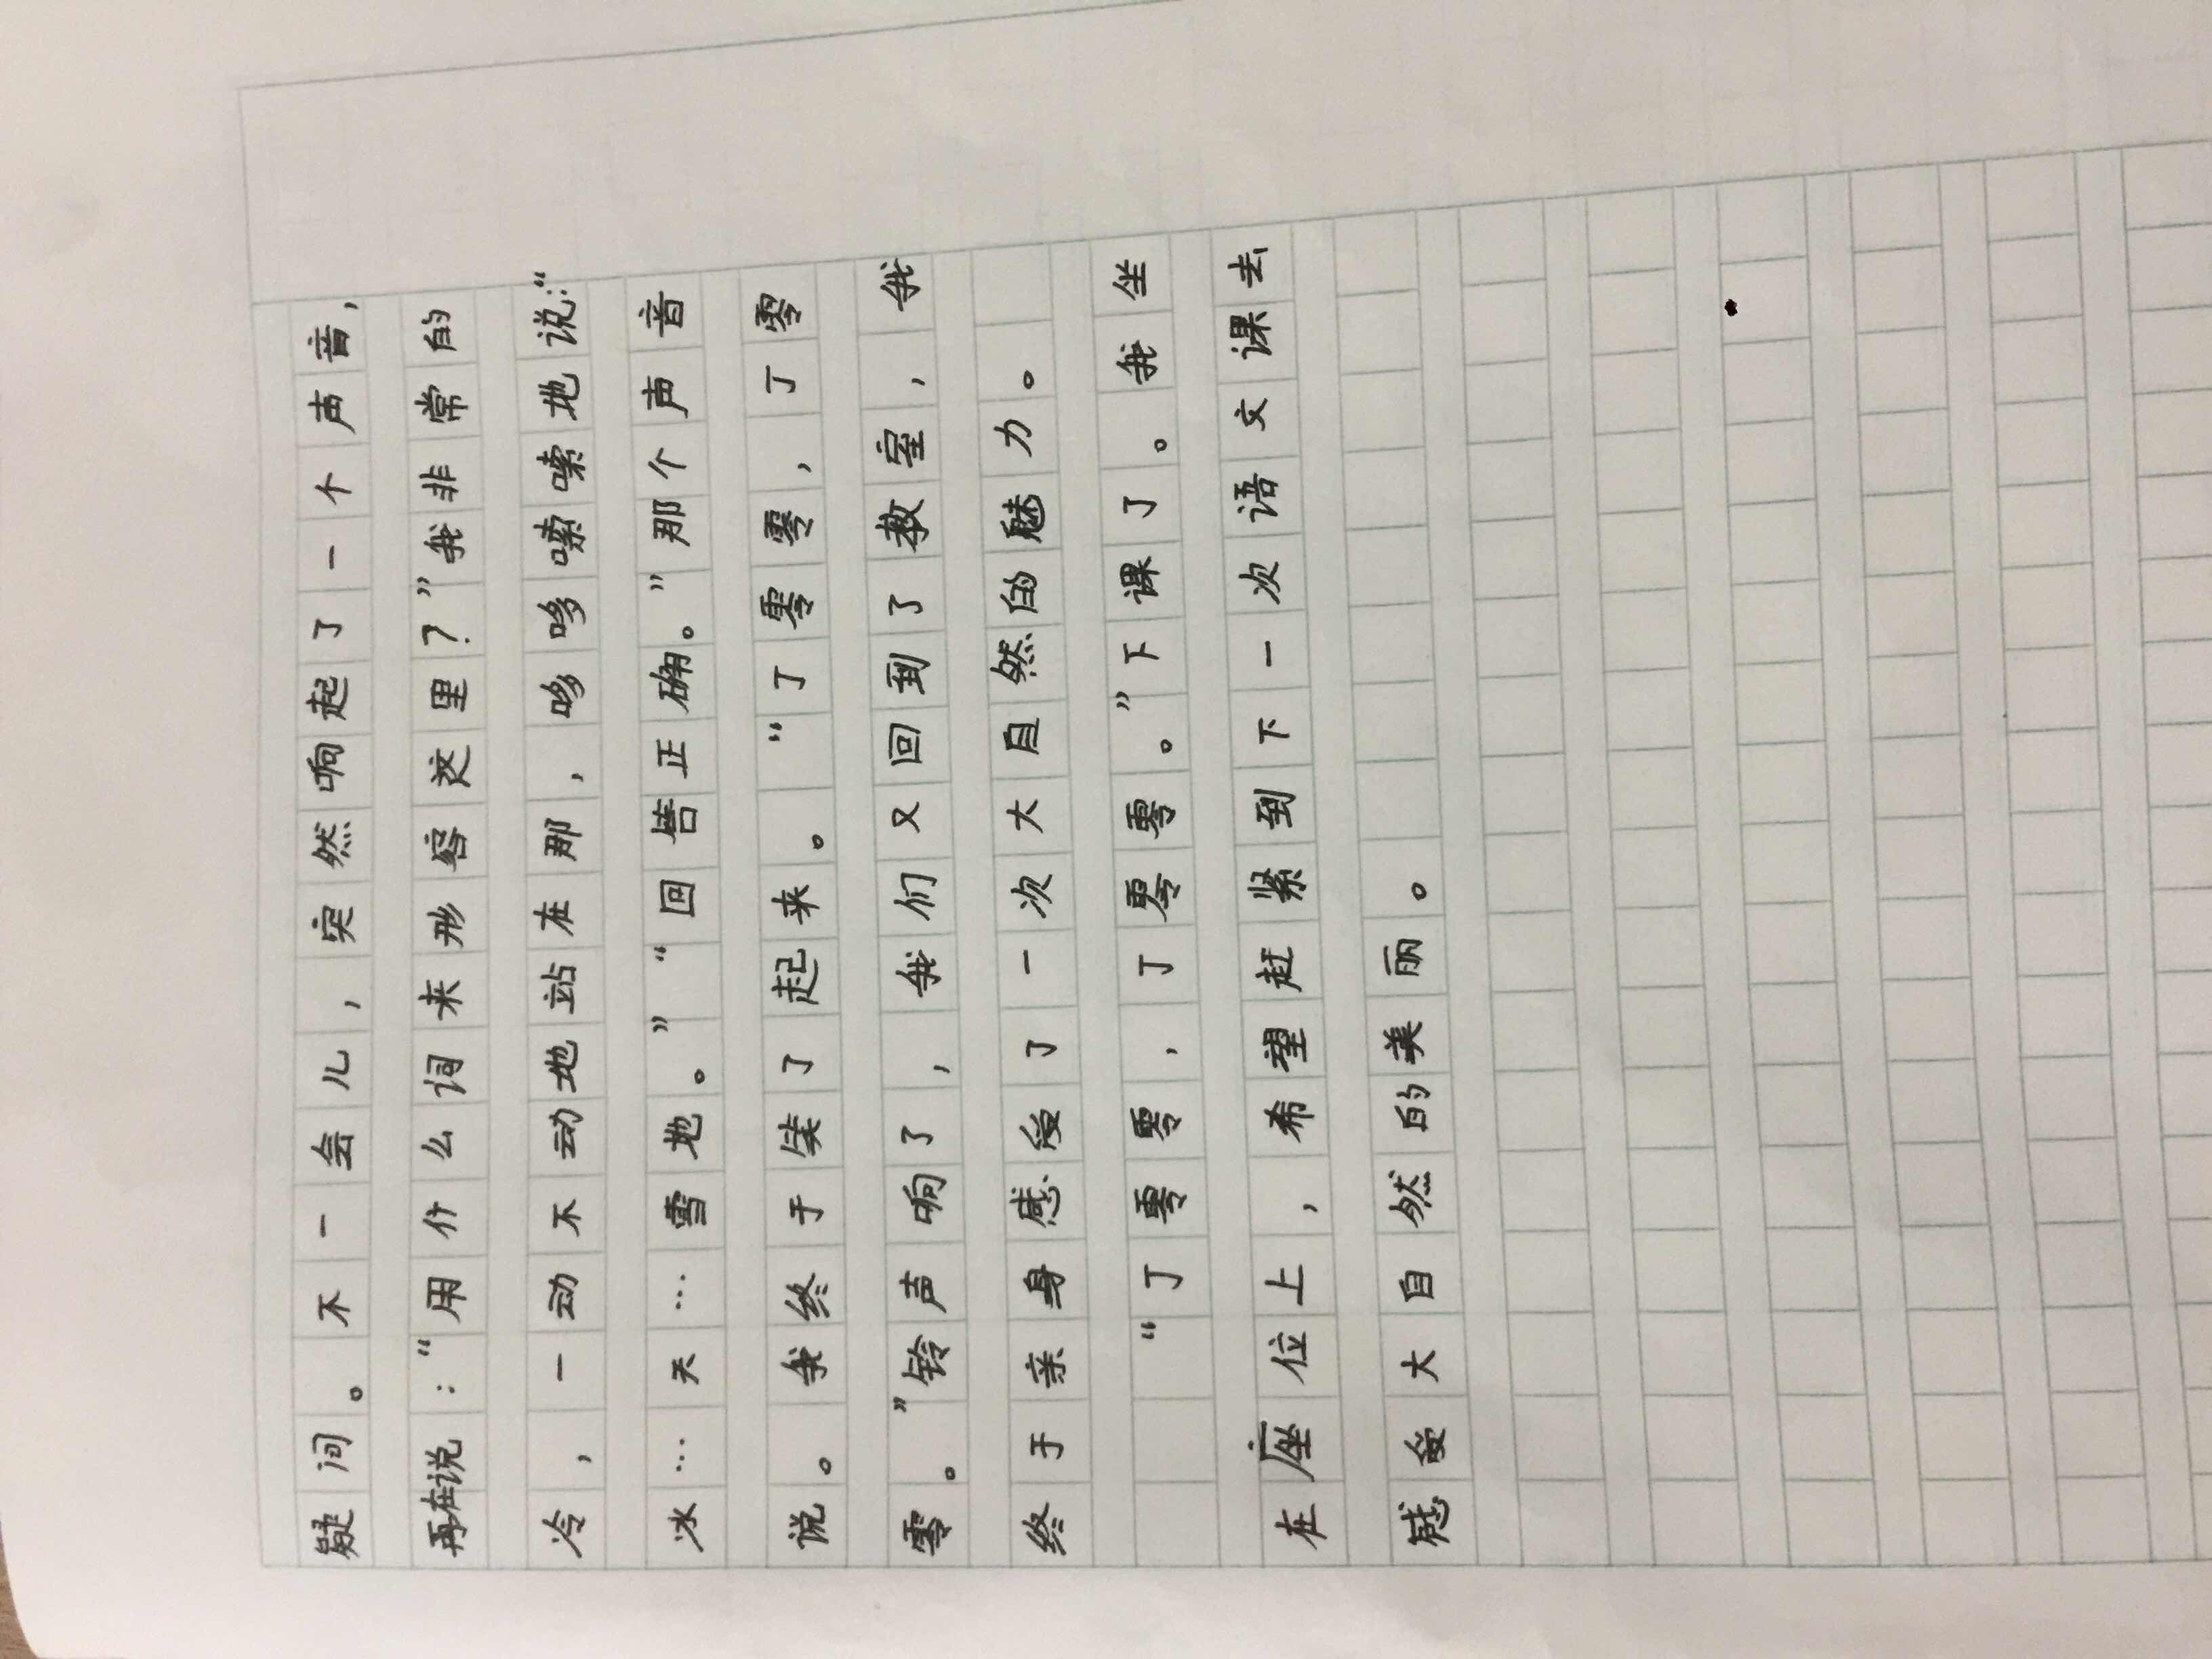 疑问。不一会儿，突然响起了一个声音，
再在说：“用什么词来形容这里？”我非常的
冷，一动不动地站在那，哆哆嗦嗦地说：“
冰……天……雪地。”“回答正确。”那个声音
说。我终于笑了起来。“丁零零，丁零
零。”铃声响了，我们又回到了教室，我
终于亲身感受了一次大自然的魅力。
“丁零零，丁零零。”下课了。我坐
在座位上，希望赶紧到下一次语文课去
感受大自然的美丽。